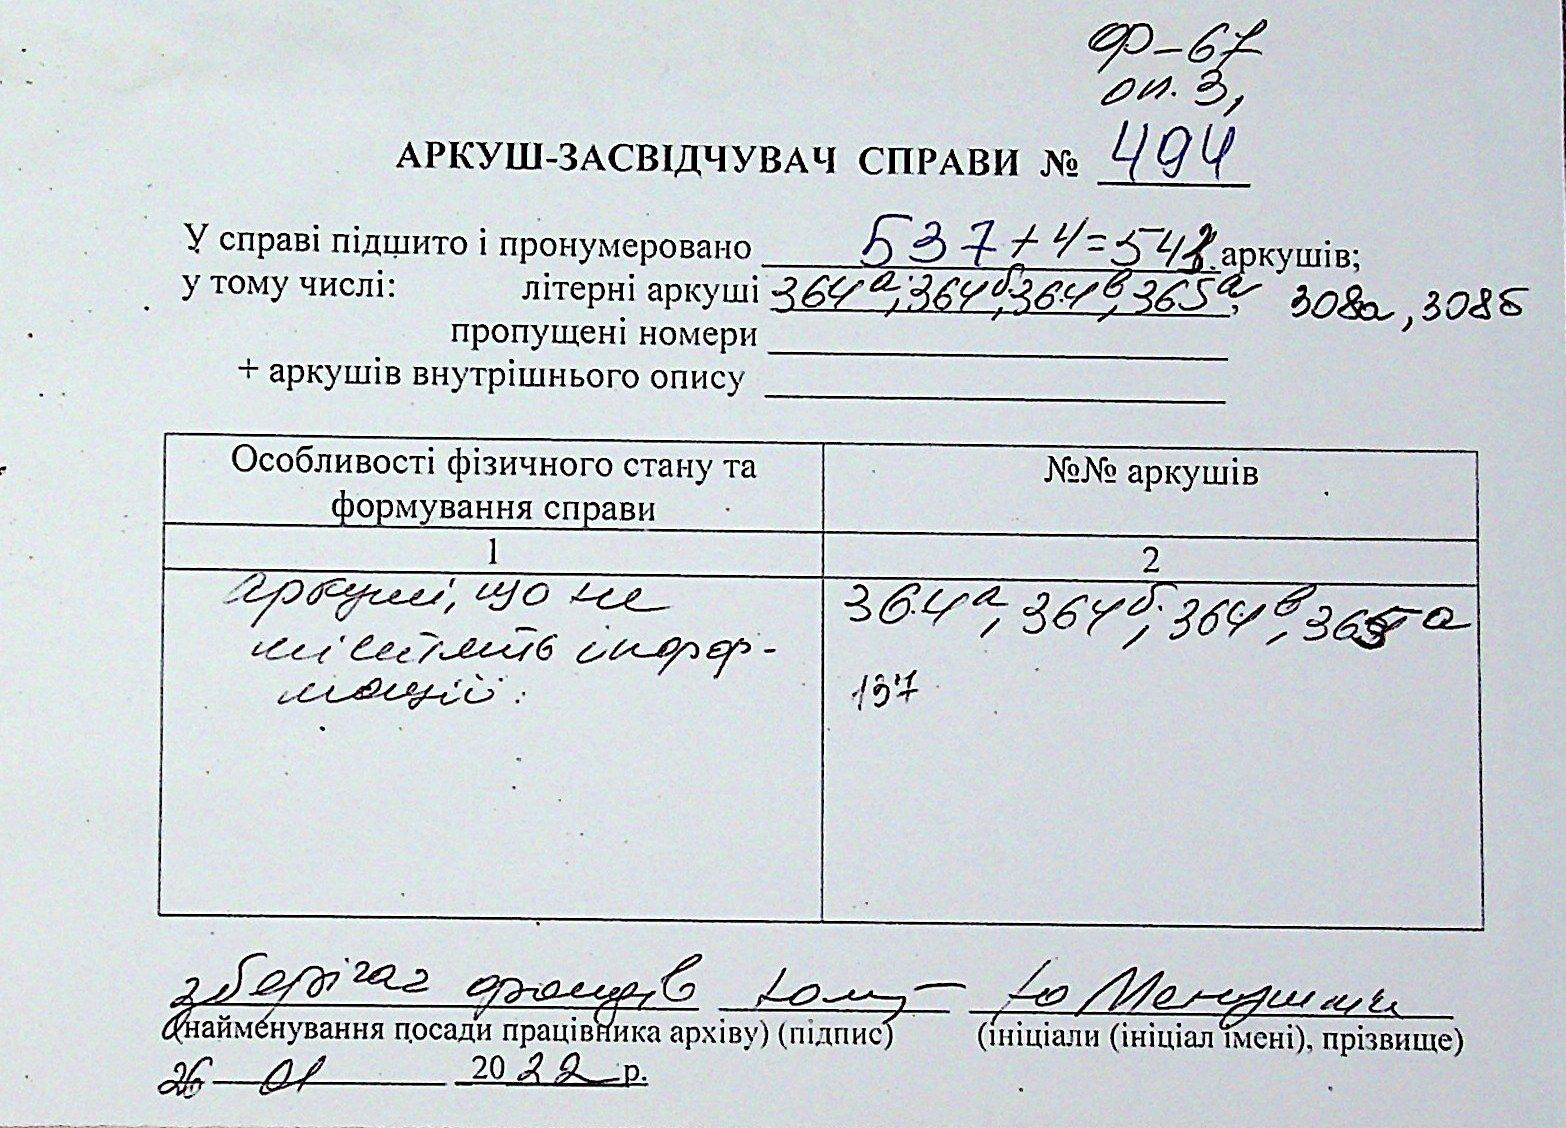 Ф-67
оп. 3,
АРКУШ-ЗАСВІДЧУВАЧ СПРАВИ № 494
У справі підшито і пронумеровано 537+4=541 аркушів;
у тому числі: літерні аркуші 364а, 364б, 364в, 365а, 308а, 308б
пропущені номери
+ аркушів внутрішнього опису
Особливості фізичного стану та формування справи №№ аркушів
1 2
аркуші, що не 364а, 364б, 364в, 365а
містять інфор-
мації: 137
зберігач фондів Ю
(найменування посади працівника архіву) (підпис) (ініціали (ініціал імені), прізвище)
26 01 2022 р.